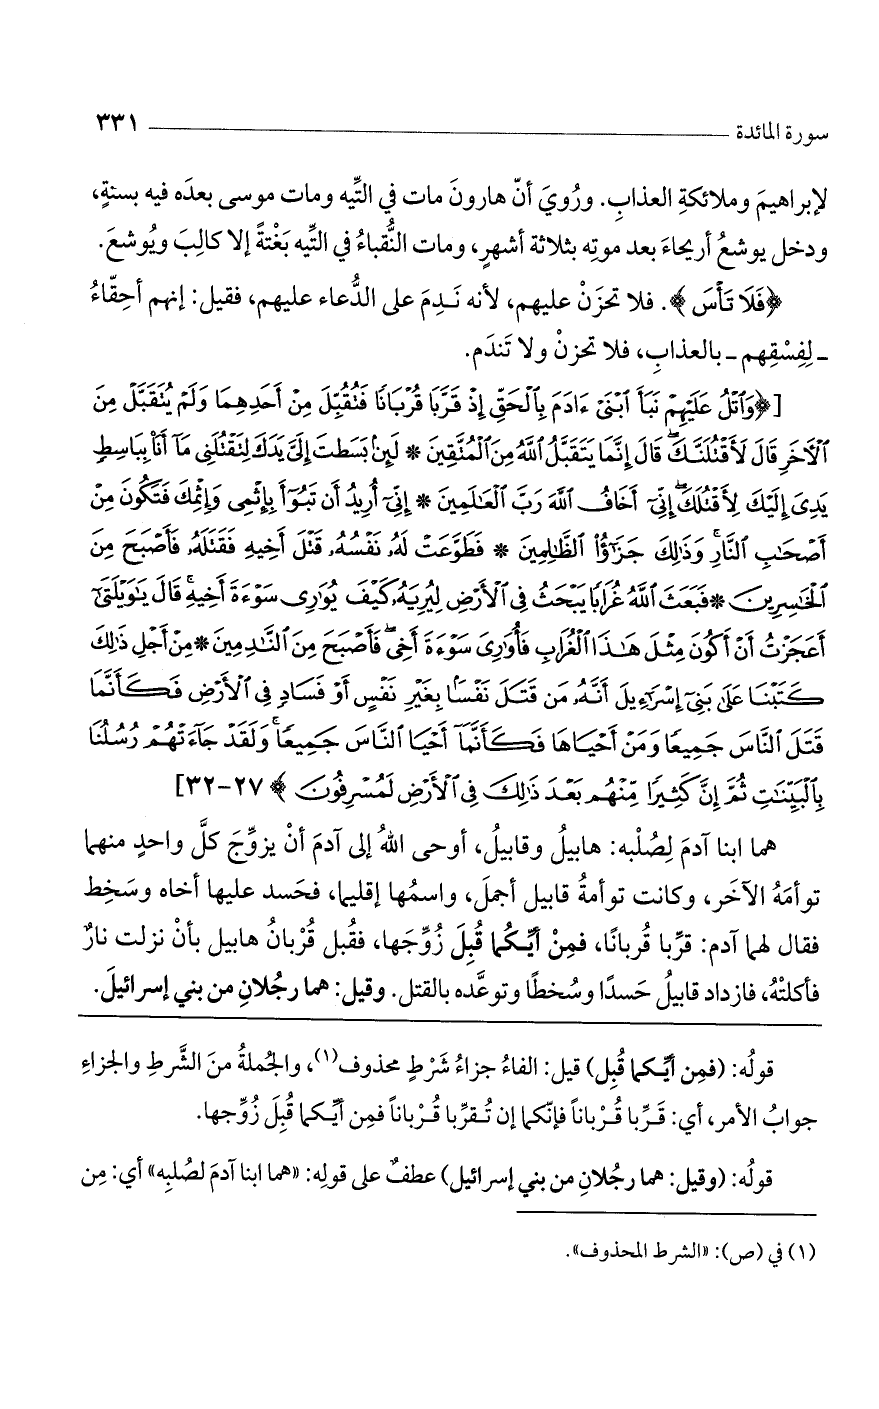 سورة المائدة ٣٣١
لإبراهيمَ وملائكةِ العذابِ. ورُويَ أنّ هارونَ مات في التِّيه ومات موسى بعدَه فيه بسنةٍ،
ودخل يوشعُ أريحاءَ بعد موتِه بثلاثة أشهرٍ، ومات النُّقباءُ في التيِّه بَغْتةً إلا كالِبَ ويُوشعَ.
﴿فَلَا تَأْسَ﴾. فلا تحزَنْ عليهم، لأنه نَدِمَ على الدُّعاء عليهم، فقيل: إنهم أحِقّاءُ
ـ لِفِسْقِهم ـ بالعذابِ، فلا تحزنْ ولا تَندَم.
[﴿وَٱتْلُ عَلَيْهِمْ نَبَأَ ٱبْنَىْ ءَادَمَ بِٱلْحَقِّ إِذْ قَرَّبَا قُرْبَانًا فَتُقُبِّلَ مِنْ أَحَدِهِمَا وَلَمْ يُتَقَبَّلْ مِنَ
ٱلْآخَرِ قَالَ لَأَقْتُلَنَّكَ ۖ قَالَ إِنَّمَا يَتَقَبَّلُ ٱللَّهُ مِنَ ٱلْمُتَّقِينَ * لَئِنۢ بَسَطتَ إِلَىَّ يَدَكَ لِتَقْتُلَنِى مَآ أَنَا۠ بِبَاسِطٍ
يَدِىَ إِلَيْكَ لِأَقْتُلَكَ ۖ إِنِّىٓ أَخَافُ ٱللَّهَ رَبَّ ٱلْعَـٰلَمِينَ * إِنِّىٓ أُرِيدُ أَن تَبُوٓأَ بِإِثْمِى وَإِثْمِكَ فَتَكُونَ مِنْ
أَصْحَـٰبِ ٱلنَّارِ ۚ وَذَٰلِكَ جَزَٰٓؤُا۟ ٱلظَّـٰلِمِينَ * فَطَوَّعَتْ لَهُۥ نَفْسُهُۥ قَتْلَ أَخِيهِ فَقَتَلَهُۥ فَأَصْبَحَ مِنَ
ٱلْخَـٰسِرِينَ * فَبَعَثَ ٱللَّهُ غُرَابًا يَبْحَثُ فِى ٱلْأَرْضِ لِيُرِيَهُۥ كَيْفَ يُوَٰرِى سَوْءَةَ أَخِيهِ ۚ قَالَ يَـٰوَيْلَتَىٰٓ
أَعَجَزْتُ أَنْ أَكُونَ مِثْلَ هَـٰذَا ٱلْغُرَابِ فَأُوَٰرِىَ سَوْءَةَ أَخِى ۖ فَأَصْبَحَ مِنَ ٱلنَّـٰدِمِينَ * مِنْ أَجْلِ ذَٰلِكَ
كَتَبْنَا عَلَىٰ بَنِىٓ إِسْرَٰٓءِيلَ أَنَّهُۥ مَن قَتَلَ نَفْسًۢا بِغَيْرِ نَفْسٍ أَوْ فَسَادٍ فِى ٱلْأَرْضِ فَكَأَنَّمَا
قَتَلَ ٱلنَّاسَ جَمِيعًا وَمَنْ أَحْيَاهَا فَكَأَنَّمَآ أَحْيَا ٱلنَّاسَ جَمِيعًا ۚ وَلَقَدْ جَآءَتْهُمْ رُسُلُنَا
بِٱلْبَيِّنَـٰتِ ثُمَّ إِنَّ كَثِيرًا مِّنْهُم بَعْدَ ذَٰلِكَ فِى ٱلْأَرْضِ لَمُسْرِفُونَ﴾ ٢٧-٣٢]
هما ابنا آدمَ لِصُلْبه: هابيلُ وقابيلُ، أوحى اللهُ إلى آدمَ أنْ يزوِّجَ كلَّ واحدٍ منهما
توأمَةُ الآخَر، وكانت توأمةُ قابيل أجملَ، واسمُها إقليما، فحَسد عليها أخاه وسَخِط
فقال لهما آدم: قرِّبا قُربانًا، فمِنْ أيِّكما قُبِلَ زُوِّجَها، فقُبل قُرْبانُ هابيل بأنْ نزلت نارٌ
فأكلتْهُ، فازداد قابيلُ حَسدًا وسُخطًا وتوعَّده بالقتل. وقيل: هما رجُلانِ من بني إسرائيلَ.
قولُه: (فمِن أيِّكما قُبِل) قيل: الفاءُ جزاءُ شَرْطٍ محذوف(١)، والجُملةُ منَ الشَّرطِ والجزاءِ
جوابُ الأمر، أي: قَرِّبا قُرْباناً فإنّكما إن تُقرِّبا قُرْباناً فمِن أيِّكما قُبِلَ زُوِّجها.
قولُه: (وقيل: هما رجُلانِ من بني إسرائيل) عطفٌ على قولِه: «هما ابنا آدمَ لصُلبِه» أي: مِن
(١) في (ص): «الشرط المحذوف».